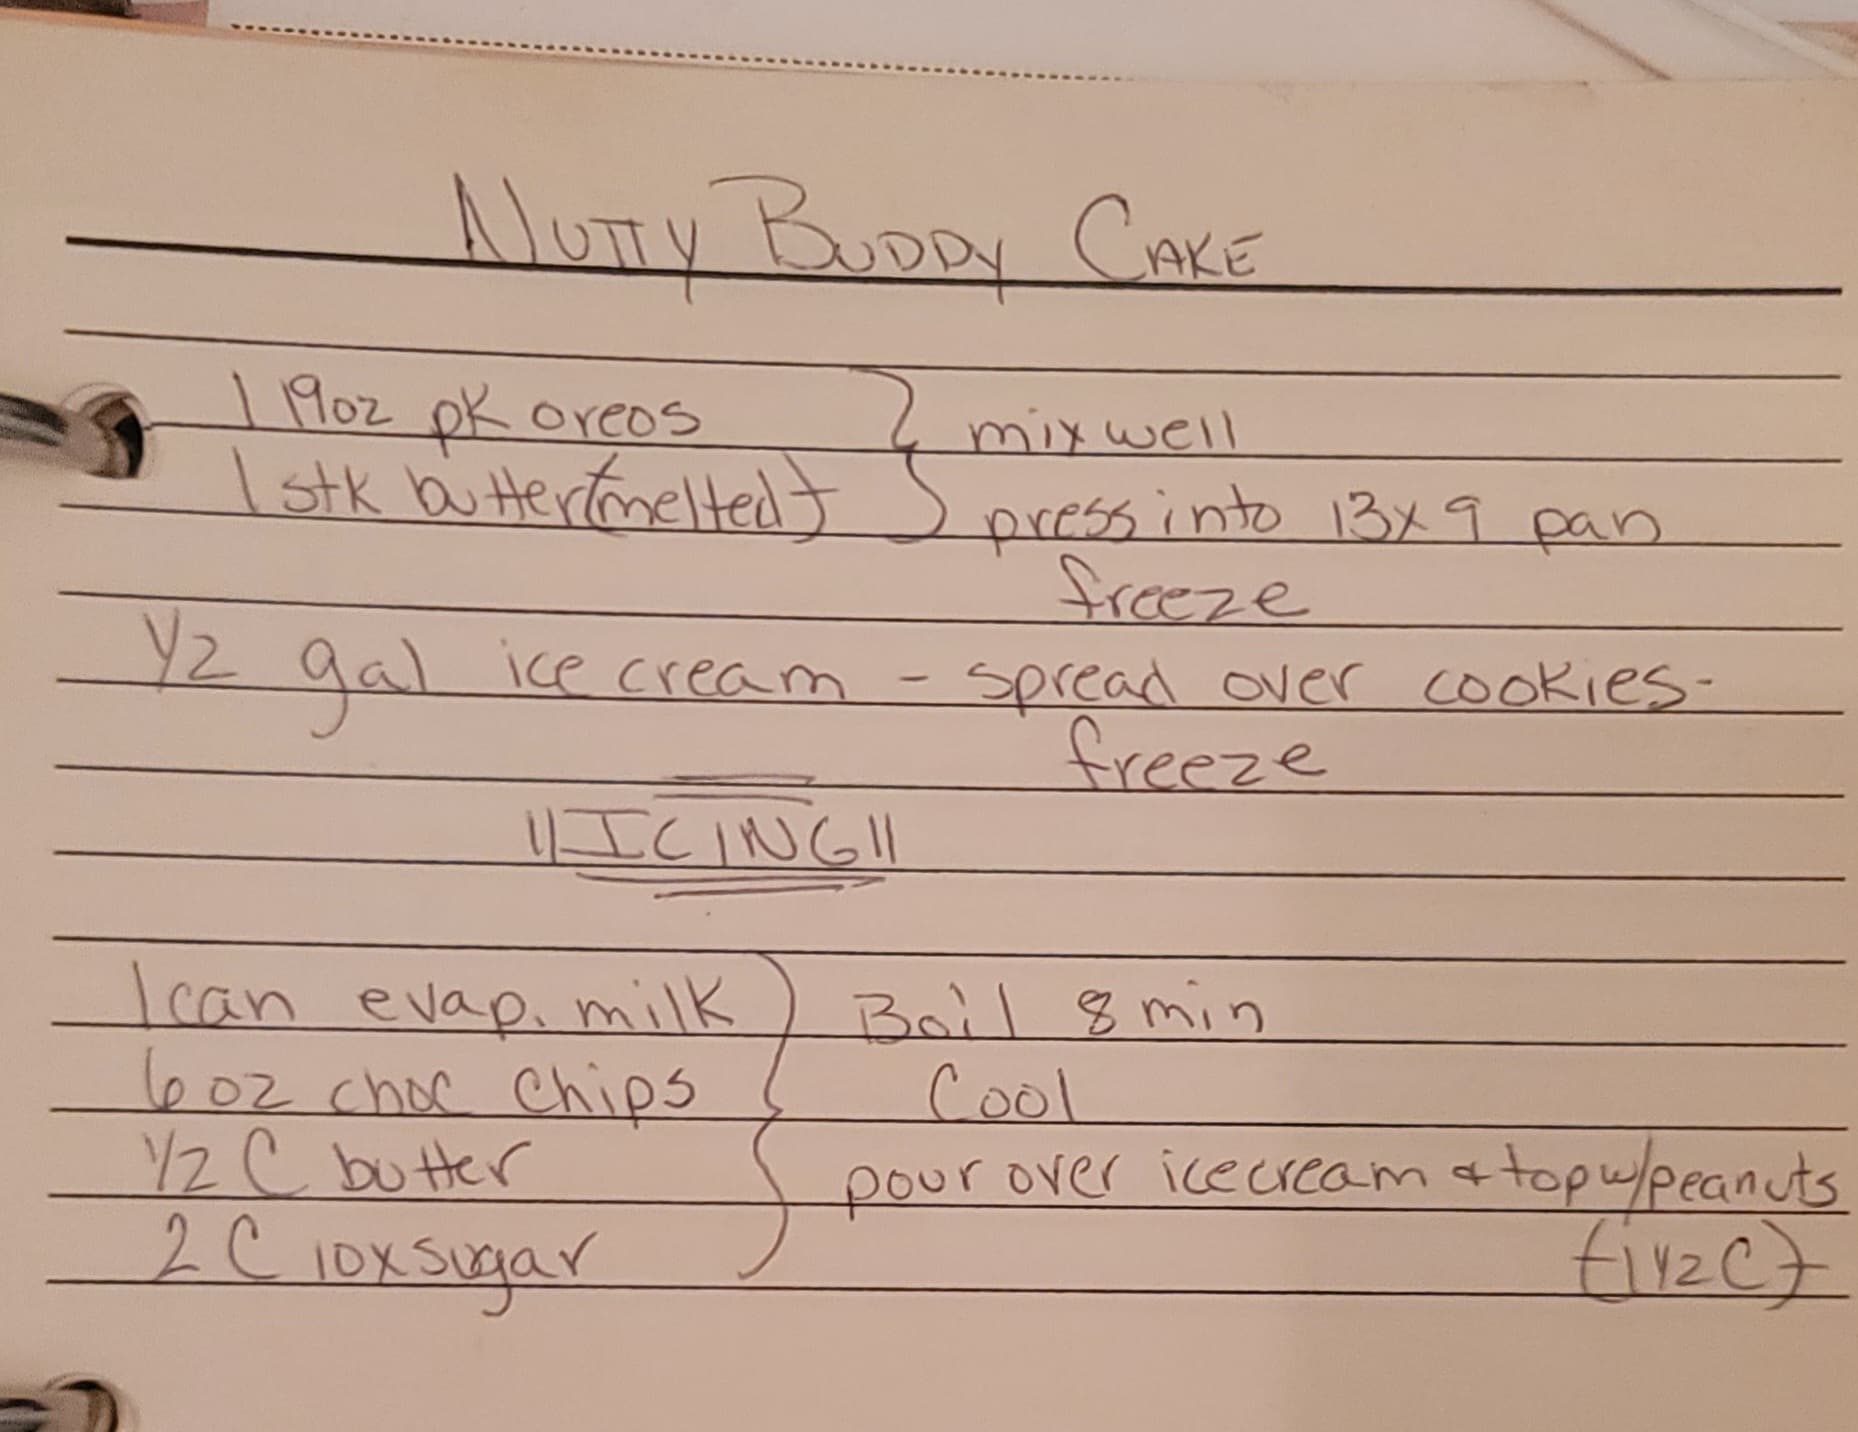 NUTTY BUDDY CAKE
1 19oz pk oreos } mix well
1 stk butter (melted) press into 13x9 pan
freeze
1/2 gal ice cream - spread over cookies -
freeze
"ICING"
1 can evap. milk } Boil 8 min
6 oz choc chips Cool
1/2 C butter pour over icecream & top w/peanuts
2 C 10x sugar (1 1/2 C)